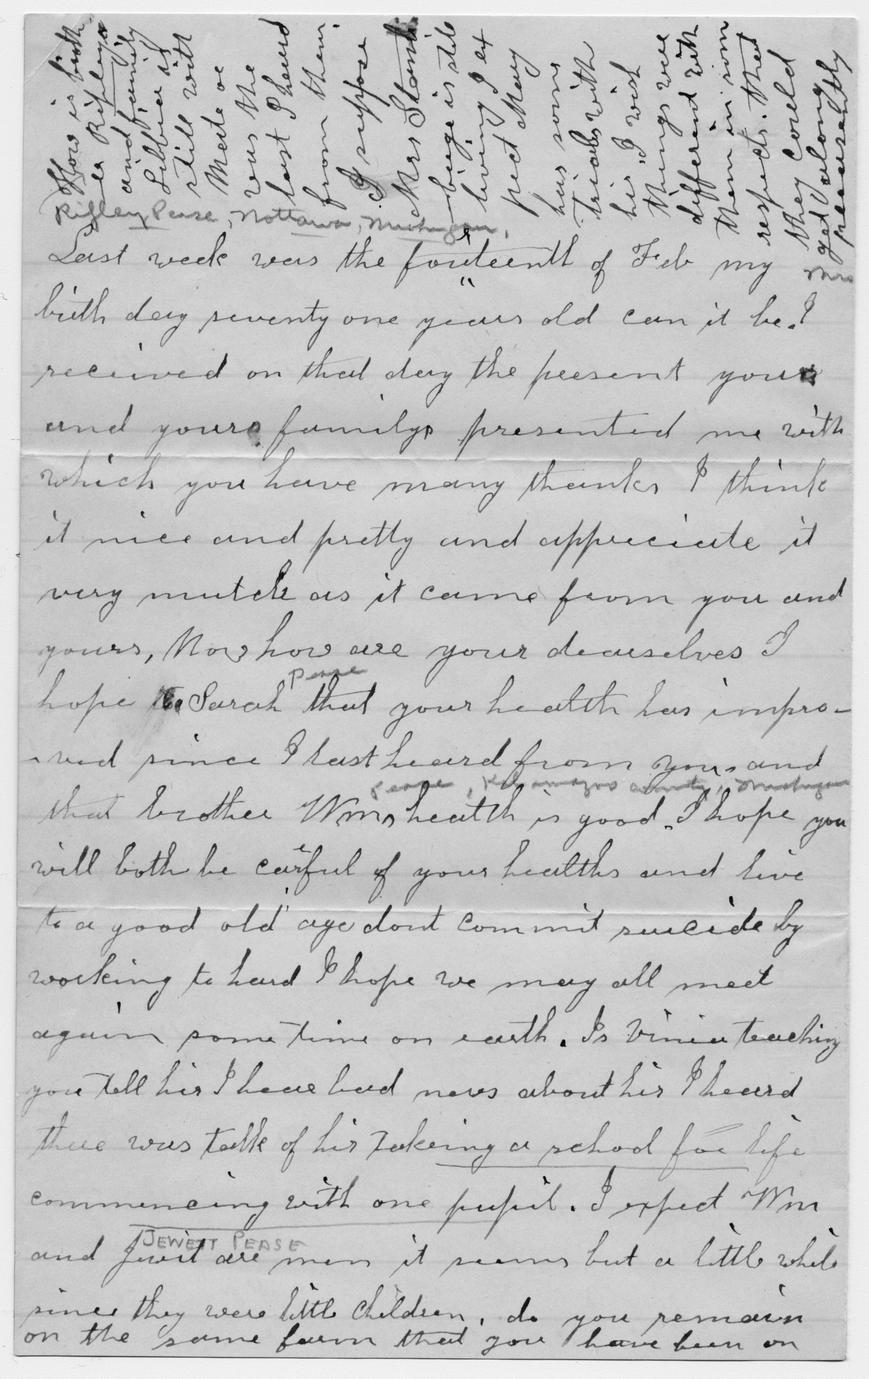 How is broth
er Ripleys
and family
Libbie is
still with
Mate or
was the
last I heard
from them.
I suppose
Mrs
is still
living I ex
pect Mary
has some
trials with
her I wish
things were
different with
them in som
respects. that
they could
get along
pleasantly
Ripley Pease, Nottawa, Michigan,
Last week was the fourteenth of Feb my
Mrs
birth day seventy one years old can it be. I
received on that day the present your
and yours familys presented me with
which you have many thanks I think
it nice and pretty and appreciate it
very mutch as it came from you and
yours, Now how are your dear selves I
Pease
hope Sarah that your health has impro-
-ved since I last heard from you, and
Pease, Kalamazoo county, Michigan
that brother Wms health is good. I hope you
will both be carful of your healths and live
to a good old age dont commit suicide by
working to hard I hope we may all meet
again some time on earth. Is Vinia teaching
you tell her I hear bad news about her I heard
there was talk of her takeing a school for life
commencing with one pupil. I expect Wm
JEWETT PEASE
and Jewit are men it seems but a little while
since they were little children, do you remain
on the same farm that you have been on